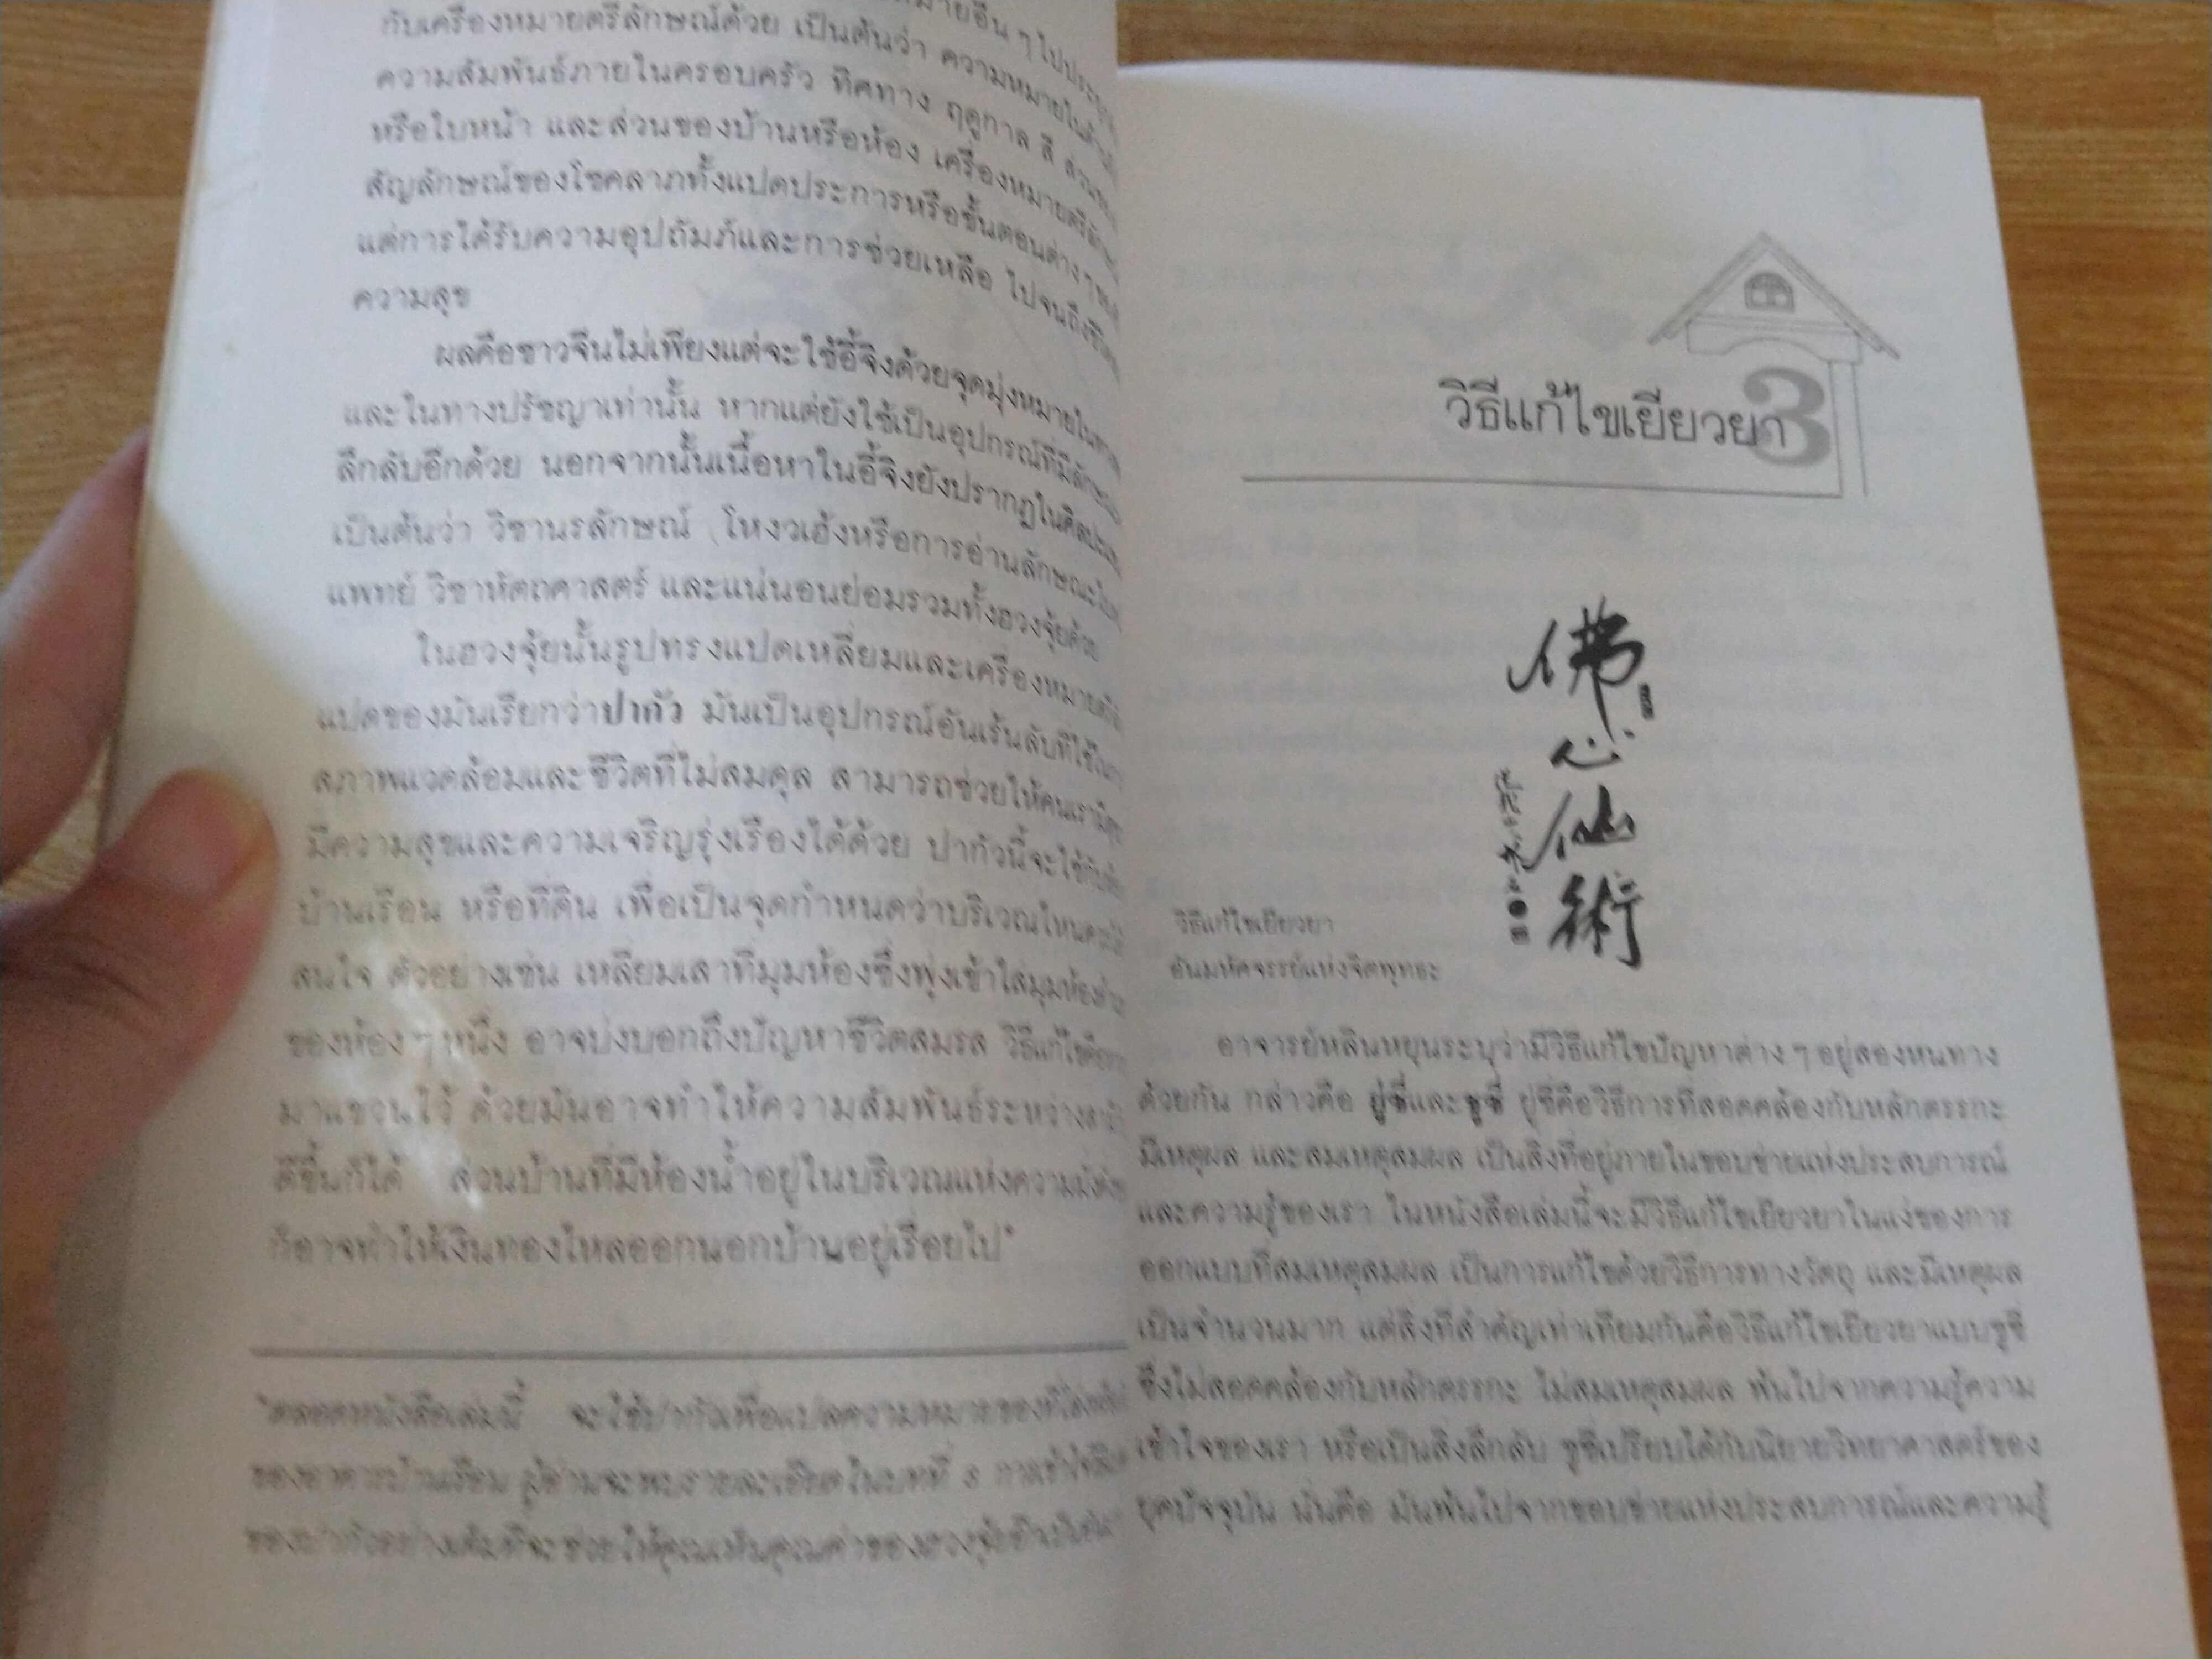 กับเครื่องหมายตรีลักษณ์ด้วย เป็นต้นว่า ความหมายในด้าน
ความสัมพันธ์ภายในครอบครัว ทิศทาง ฤดูกาล สี
หรือใบหน้า และส่วนของบ้านหรือห้อง เครื่องหมายตรีลักษณ์
สัญลักษณ์ของโชคลาภทั้งแปดประการหรือขั้นตอนต่างๆ
แต่การได้รับความอุปถัมภ์และการช่วยเหลือ ไปจนถึงชีวิต
ความสุข
ผลคือชาวจีนไม่เพียงแต่จะใช้อี้จิงด้วยจุดมุ่งหมายใน
และในทางปรัชญาเท่านั้น หากแต่ยังใช้เป็นอุปกรณ์ที่มีลักษณะ
ลึกลับอีกด้วย นอกจากนั้นเนื้อหาในอี้จิงยังปรากฏใน
เป็นต้นว่า วิชานรลักษณ์ (โหงวเฮ้งหรือการอ่านลักษณะ
แพทย์ วิชาหัตถศาสตร์ และแน่นอนย่อมรวมทั้งฮวงจุ้ยด้วย
ในฮวงจุ้ยนั้นรูปทรงแปดเหลี่ยมและเครื่องหมาย
แปดของมันเรียกว่าปากัว มันเป็นอุปกรณ์อันเร้นลับที่ใช้ใน
สภาพแวดล้อมและชีวิตที่ไม่สมดุล สามารถช่วยให้คนเรา
มีความสุขและความเจริญรุ่งเรืองได้ด้วย ปากัวนี้จะใช้กับ
บ้านเรือน หรือที่ดิน เพื่อเป็นจุดกำหนดว่าบริเวณไหน
สนใจ ตัวอย่างเช่น เหลี่ยมเสาที่มุมห้องซึ่งพุ่งเข้าใส่มุมห้อง
ของห้องๆ หนึ่ง อาจบ่งบอกถึงปัญหาชีวิตสมรส วิธีแก้ไขคือ
มาแขวนไว้ ด้วยมันอาจทำให้ความสัมพันธ์ระหว่าง
ดีขึ้นก็ได้ ส่วนบ้านที่มีห้องน้ำอยู่ในบริเวณแห่งความมั่งคั่ง
ก็อาจทำให้เงินทองไหลออกนอกบ้านอยู่เรื่อยไป*
*ตลอดหนังสือเล่มนี้ จะใช้ปากัวเพื่อแปลความหมายของที่
ของอาคารบ้านเรือน ผู้อ่านจะพบรายละเอียดในบทที่
3
วิธีแก้ไขเยียวยา
佛心仙術
วิธีแก้ไขเยียวยา
อันมหัศจรรย์แห่งจิตพุทธะ
อาจารย์หลินหยุนระบุว่ามีวิธีแก้ไขปัญหาต่างๆ อยู่สองหนทาง
ด้วยกัน กล่าวคือ ยู่ซี่และชูซี่ ยู่ซี่คือวิธีการที่สอดคล้องกับหลักตรรกะ
มีเหตุผล และสมเหตุสมผล เป็นสิ่งที่อยู่ภายในขอบข่ายแห่งประสบการณ์
และความรู้ของเรา ในหนังสือเล่มนี้จะมีวิธีแก้ไขเยียวยาในแง่ของการ
ออกแบบที่สมเหตุสมผล เป็นการแก้ไขด้วยวิธีการทางวัตถุ และมีเหตุผล
เป็นจำนวนมาก แต่สิ่งที่สำคัญเท่าเทียมกันคือวิธีแก้ไขเยียวยาแบบชูซี่
ซึ่งไม่สอดคล้องกับหลักตรรกะ ไม่สมเหตุสมผล พ้นไปจากความรู้ความ
เข้าใจของเรา หรือเป็นสิ่งลึกลับ ชูซี่เปรียบได้กับนิยายวิทยาศาสตร์ของ
ยุคปัจจุบัน นั่นคือ มันพ้นไปจากขอบข่ายแห่งประสบการณ์และความรู้